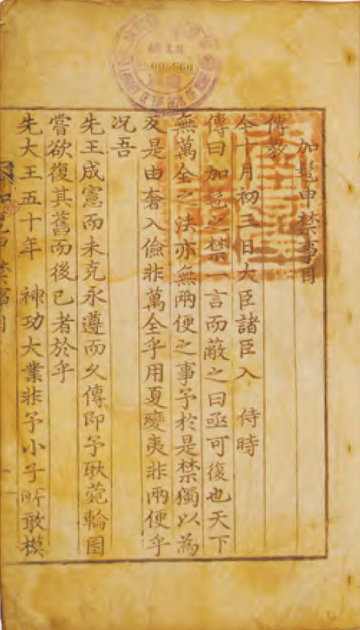 加髢申禁事目
傳教
今十月初三日大臣諸臣入 侍時
傳曰加髢之禁一言而蔽之曰亟可復也天下
無萬全之法亦無兩便之事予於是禁獨以爲
及是由奢入儉非萬全乎用夏變夷非兩便乎
況吾
先王成憲而未克永遵而久傳即予耿菀輪囷
嘗欲復其舊而後已者於乎
先大王五十年 神功大業非予小子所敢模